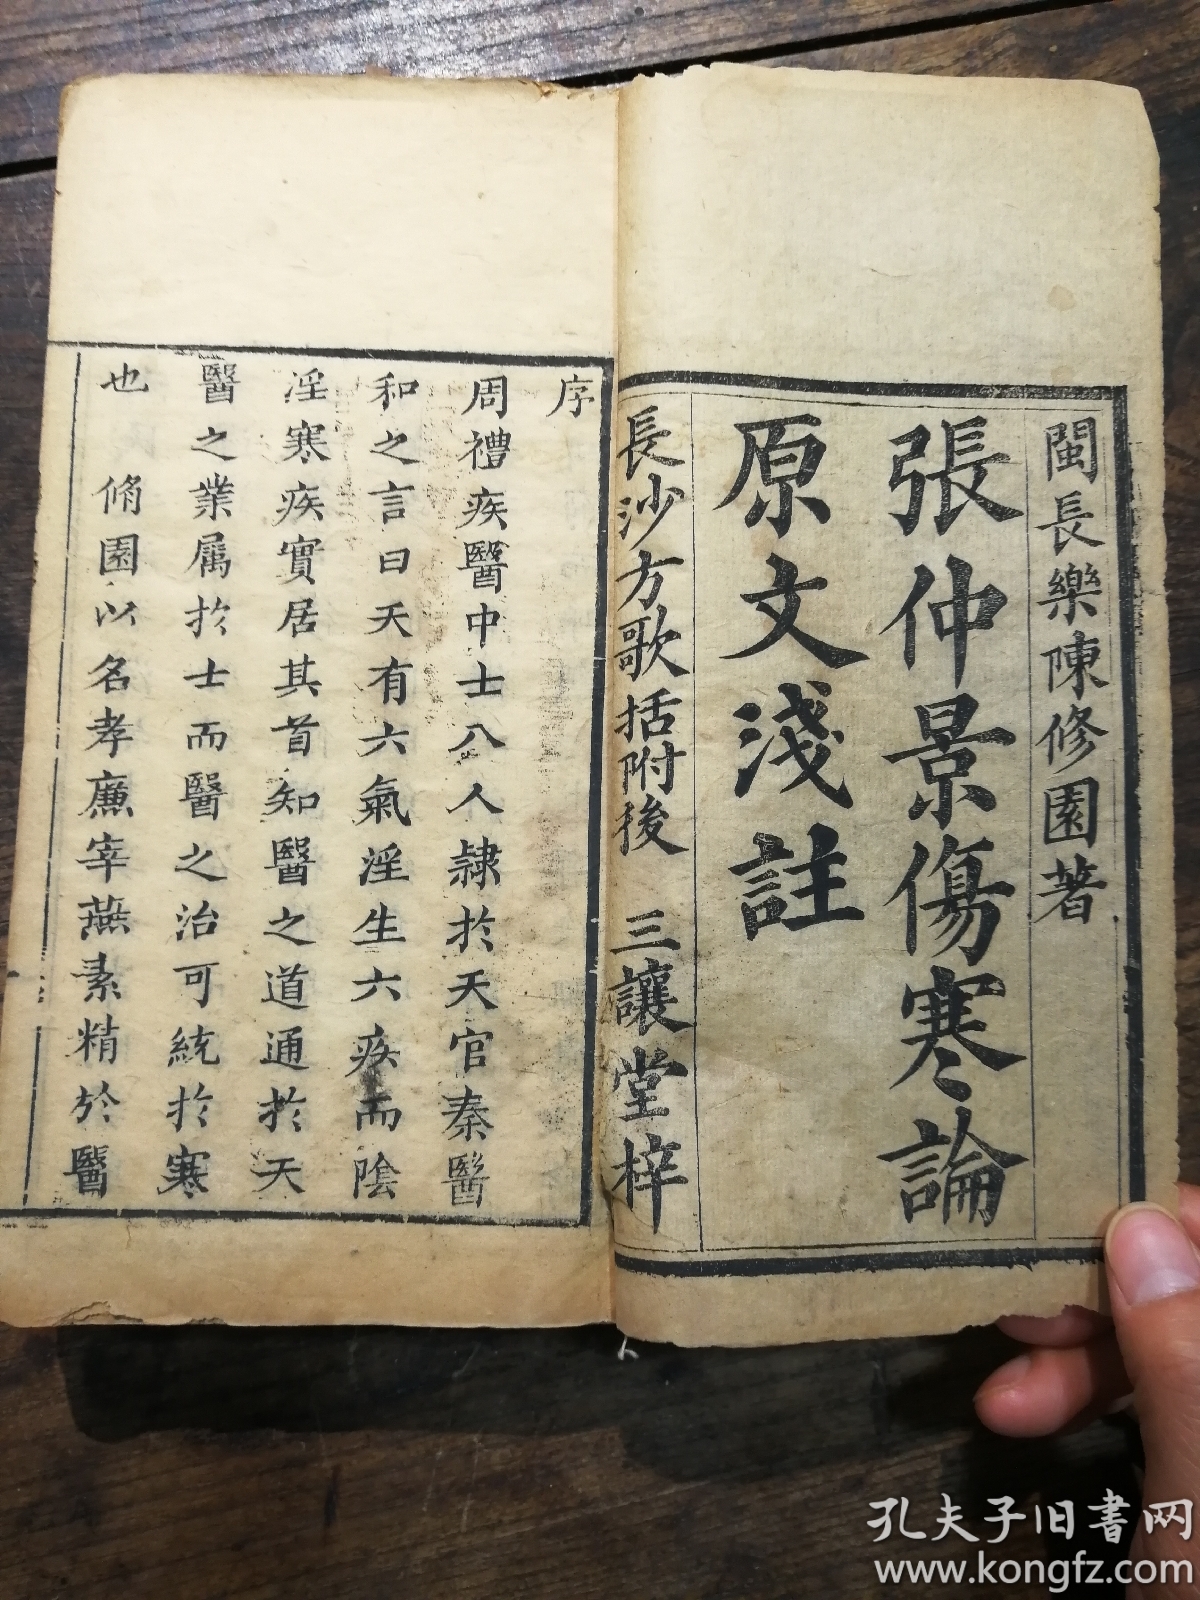 閩長樂陳修園著
張仲景傷寒論
原文淺註
長沙方歌括附後 三讓堂梓
序
周禮疾醫中士八人隷於天官秦醫
和之言曰天有六氣淫生六疾而陰
淫寒疾實居其首知醫之道通於天
醫之業屬於士而醫之治可統於寒
也 脩園以名孝廉宰燕素精於醫
孔夫子旧书网
www.kongfz.com